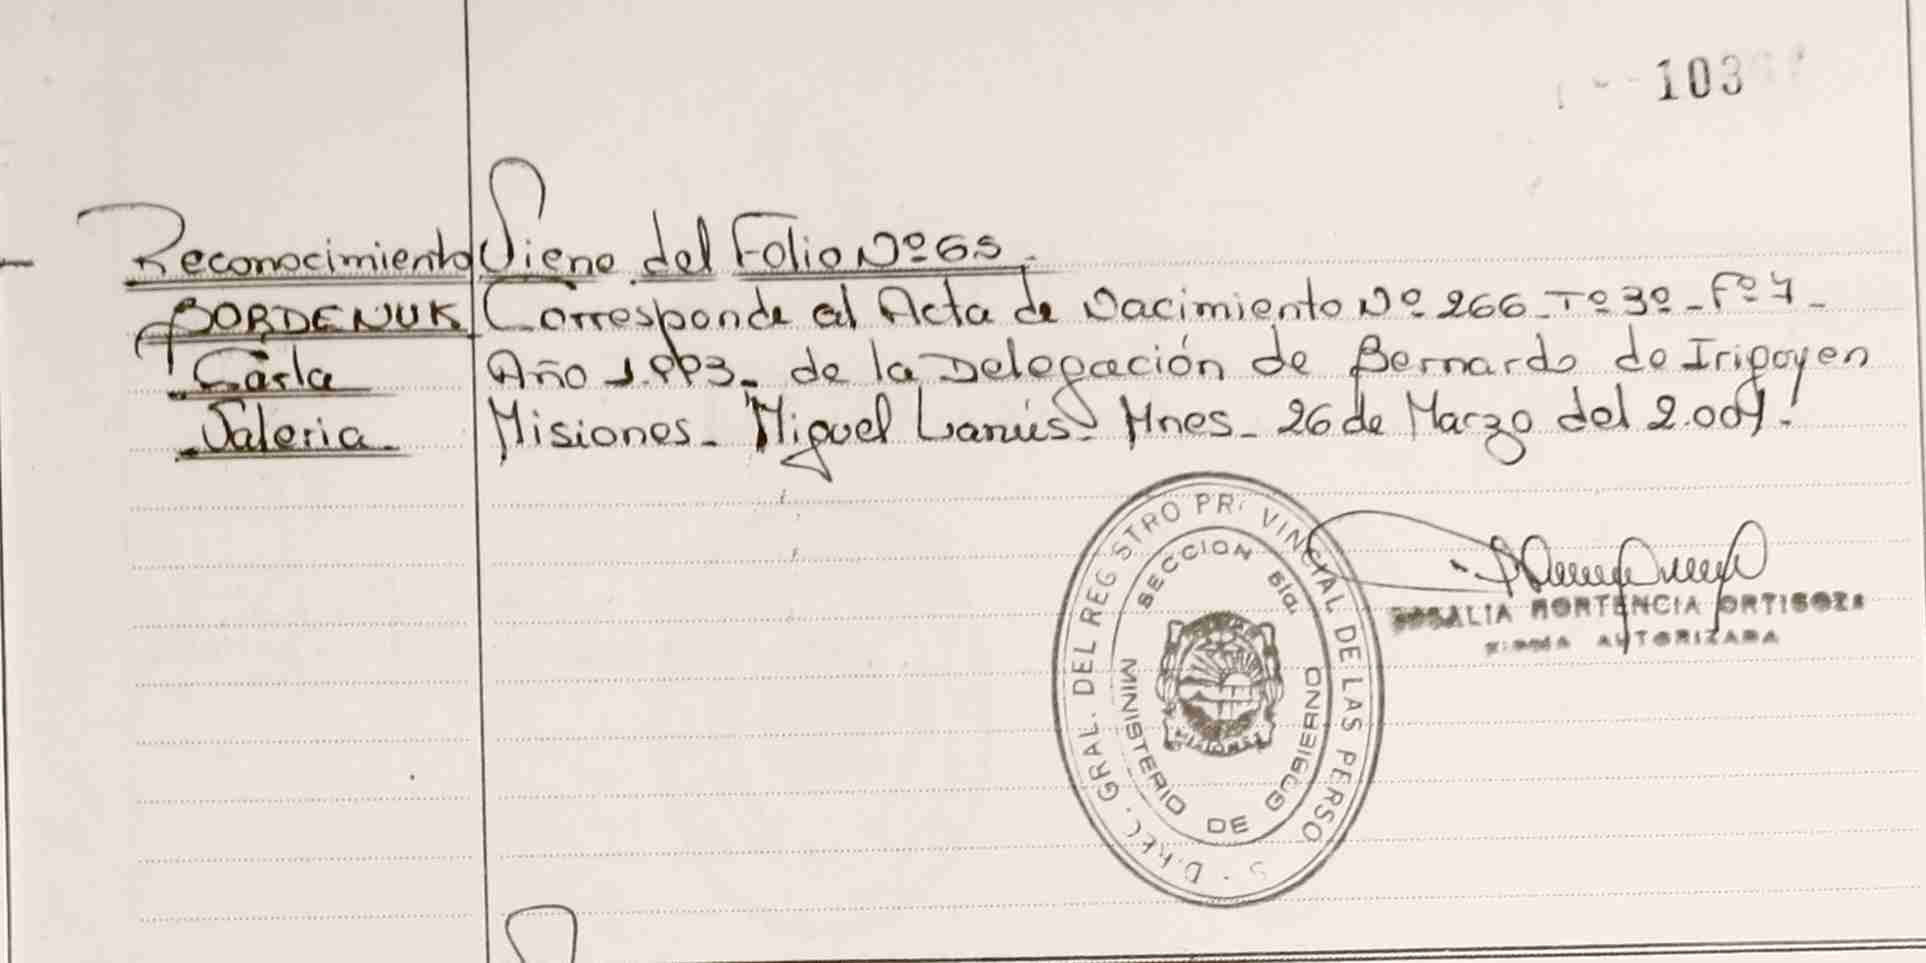 103
Reconocimiento
BORDENUK
Carla
Valeria.
Viene del Folio Nº 65.
Corresponde al Acta de Nacimiento Nº 266 - Tº 3º - Fº 7 -
Año 1.993. de la Delegación de Bernardo de Irigoyen
Misiones - Miguel Lanús - Mnes - 26 de Marzo del 2.007.-
DIREC. GRAL. DEL REGISTRO PROVINCIAL DE LAS PERSONAS
SECCION
MINISTERIO DE GOBIERNO
MISIONES
ROSALIA HORTENCIA ORTIGOZA
FIRMA AUTORIZADA